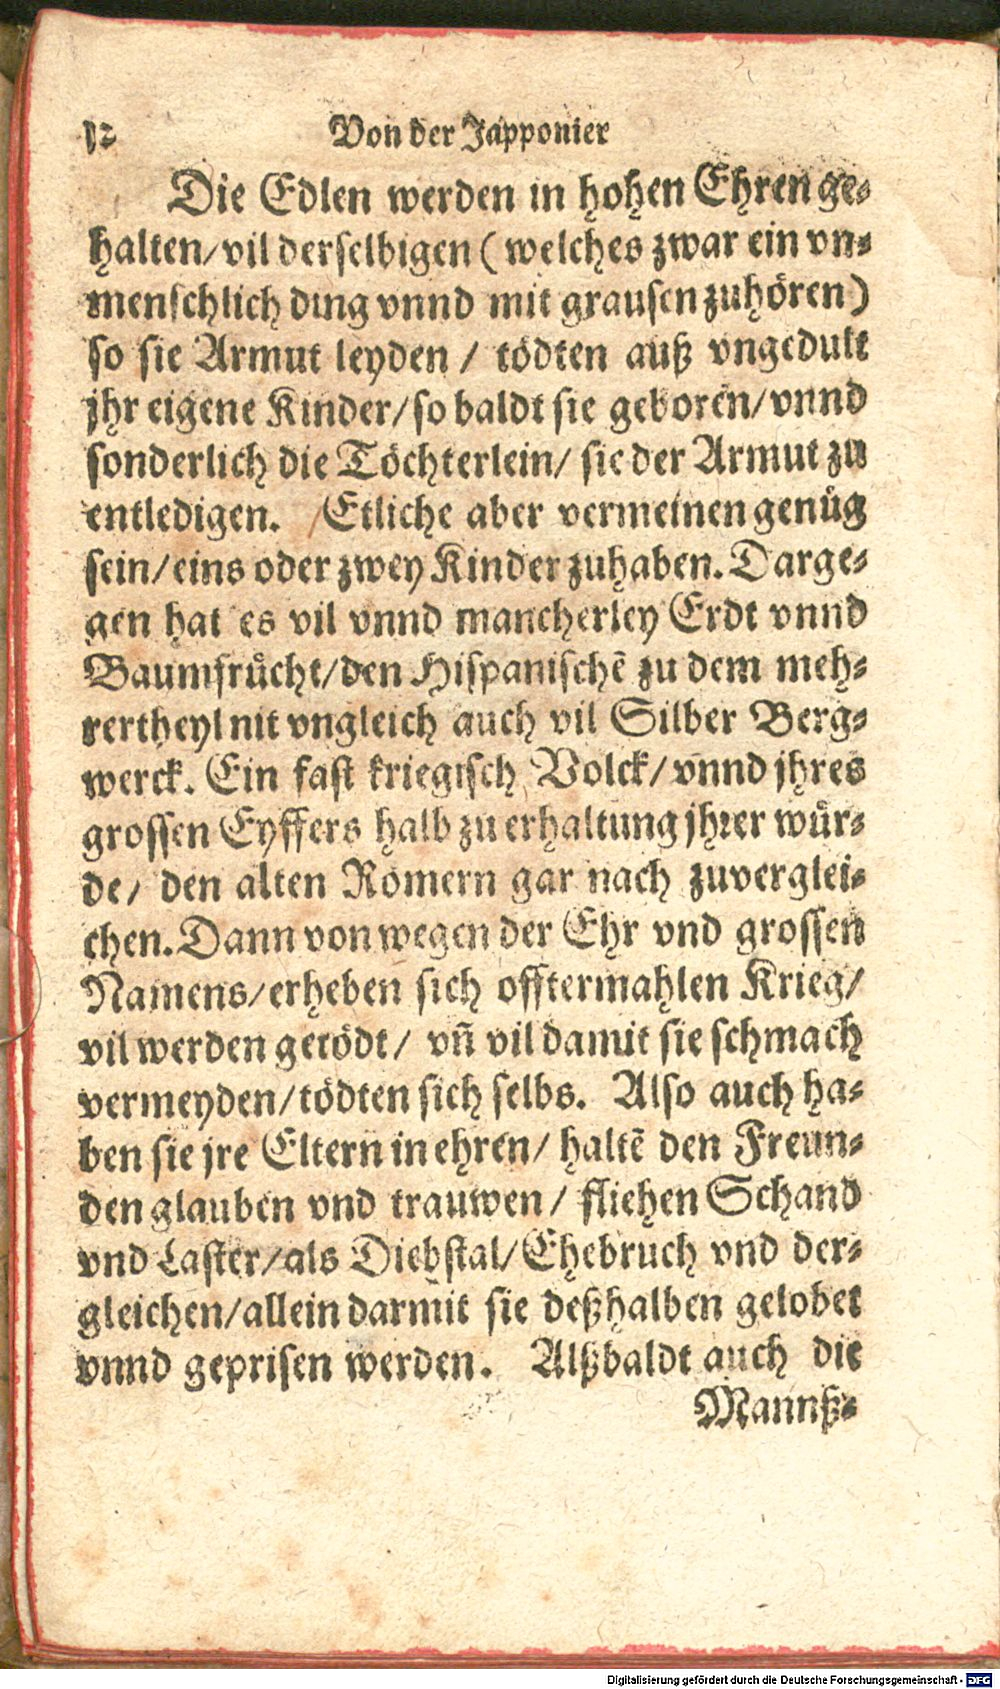 12 Von der Japponier
Die Edlen werden in hohen Ehren ge-
halten/ vil derselbigen ( welches zwar ein vn-
menschlich ding vnnd mit grausen zuhören)
so sie Armut leyden / tödten auß vngedult
jhr eigene Kinder/ so baldt sie geboren/ vnnd
sonderlich die Töchterlein/ sie der Armut zu
entledigen. Etliche aber vermeinen genůg
sein/ eins oder zwey Kinder zuhaben. Darge-
gen hat es vil vnnd mancherley Erdt vnnd
Baumfrücht/ den Hispanischē zu dem meh-
rertheyl nit vngleich auch vil Silber Berg-
werck. Ein fast kriegisch Volck/ vnnd jhres
grossen Eyffers halb zu erhaltung jhrer wür-
de/ den alten Römern gar nach zuverglei-
chen. Dann von wegen der Ehr vnd grossen
Namens/ erheben sich offtermahlen Krieg/
vil werden getödt/ vn̄ vil damit sie schmach
vermeyden/ tödten sich selbs. Also auch ha-
ben sie jre Eltern in ehren/ haltē den Freun-
den glauben vnd trauwen/ fliehen Schand
vnd Laster/ als Diebstal/ Ehebruch vnd der-
gleichen/ allein darmit sie deßhalben gelobet
vnnd geprisen werden. Alßbaldt auch die
Mannß-
Digitalisierung gefördert durch die Deutsche Forschungsgemeinschaft - DFG